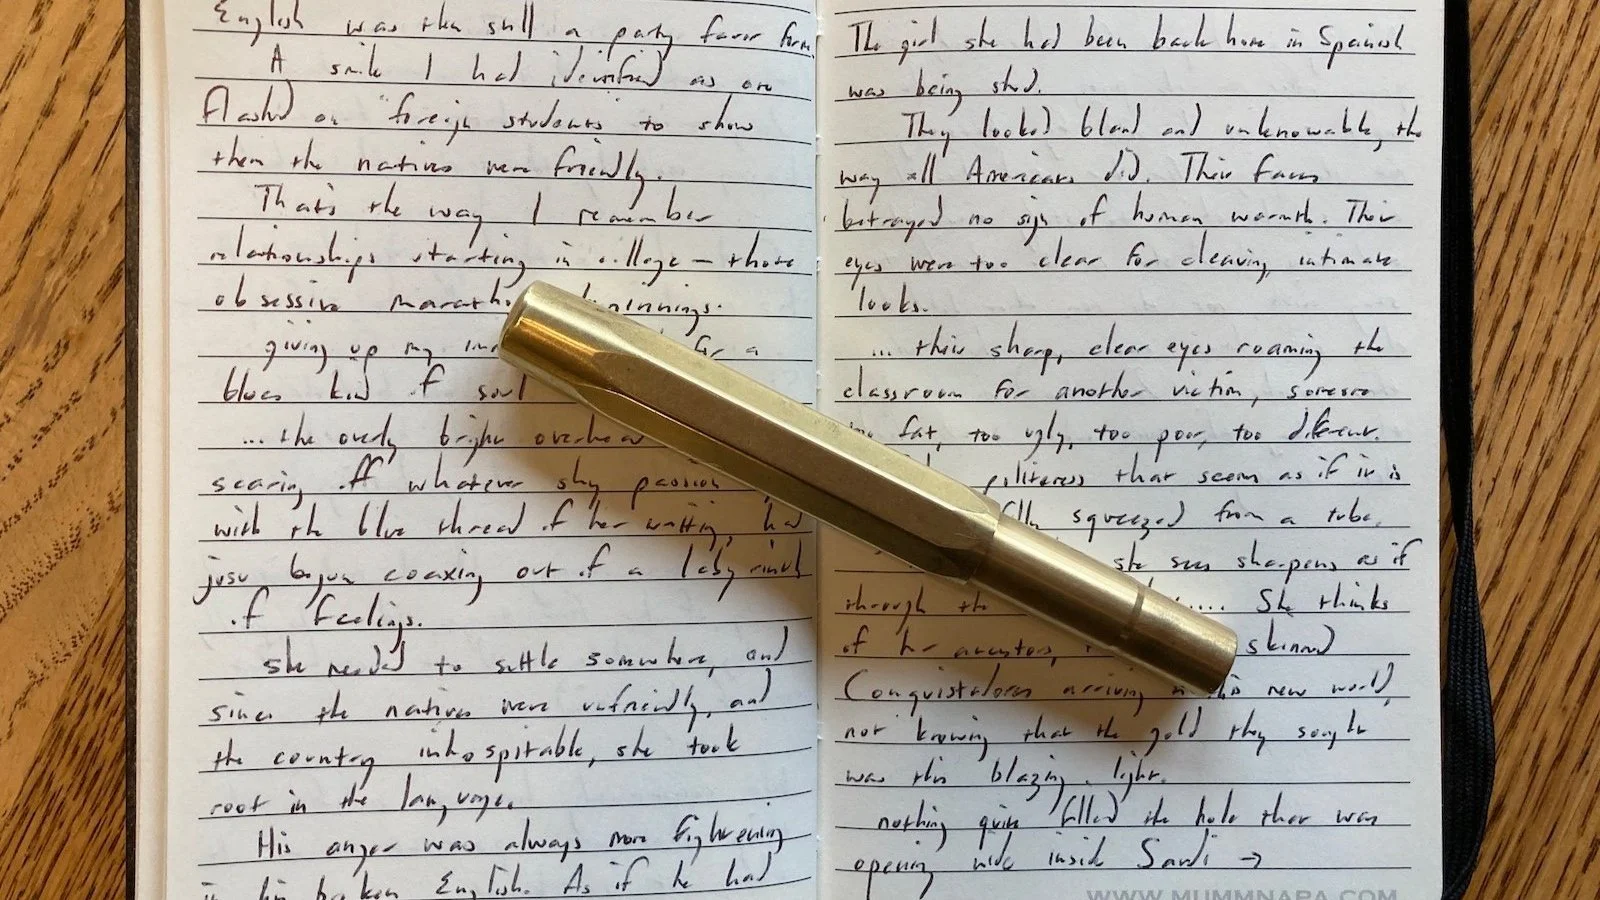 English was then still a party favor form
A smile I had identified as one
flashed on foreign students to show
them the natives were friendly.
That's the way I remember
relationships starting in college — those
obsessive
giving up my for a
blues kind of soul
... the overly bright overhead
scaring off whatever shy passion
with the blue thread of her writing, had
just begun coaxing out of a labyrinth
of feelings.
She needed to settle somewhere, and
since the natives were unfriendly, and
the country inhospitable, she took
root in the language.
His anger was always more frightening
in his broken English. As if he had
The girl she had been back home in Spanish
was being shed.
They looked bland and unknowable, the
way all Americans did. Their faces
betrayed no sign of human warmth. Their
eyes were too clear for cleaving, intimate
looks.
... their sharp, clear eyes roaming the
classroom for another victim, someone
too fat, too ugly, too poor, too different.
politeness that seem as if it is
squeezed from a tube.
she sees sharpens as if
through the .... She thinks
of her ancestors, skinned
Conquistadores arriving in this new world,
not knowing that the gold they sought
was this blazing light.
nothing quite filled the hole that was
opening wide inside Sandi →
WWW.MUMMNAPA.COM